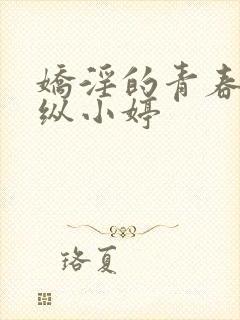 嬌淫的青春
纵小婷
珞夏